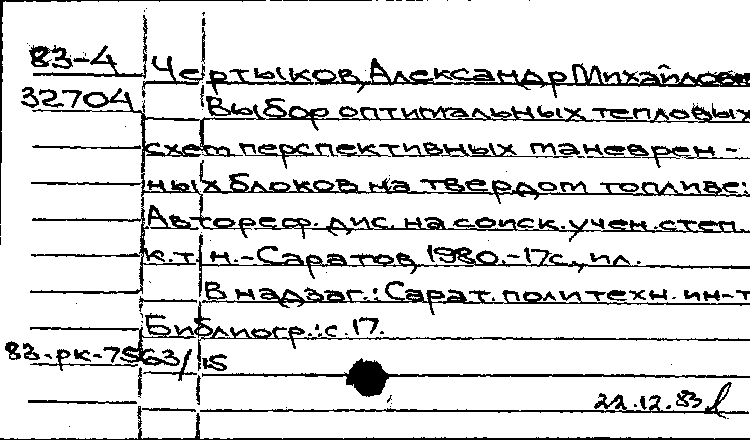 83-4 Чертыков, Александр Михайлович
32704 Выбор оптимальных тепловых
схем перспективных маневрен-
ных блоков на твердом топливе:
Автореф. дис. на соиск. учен. степ.
к.т.н.-Саратов, 1980.-17с., ил.
В надзаг.: Сарат. политехн. ин-т
Библиогр.: с. 17.
83-рк-7563/15
22.12.83